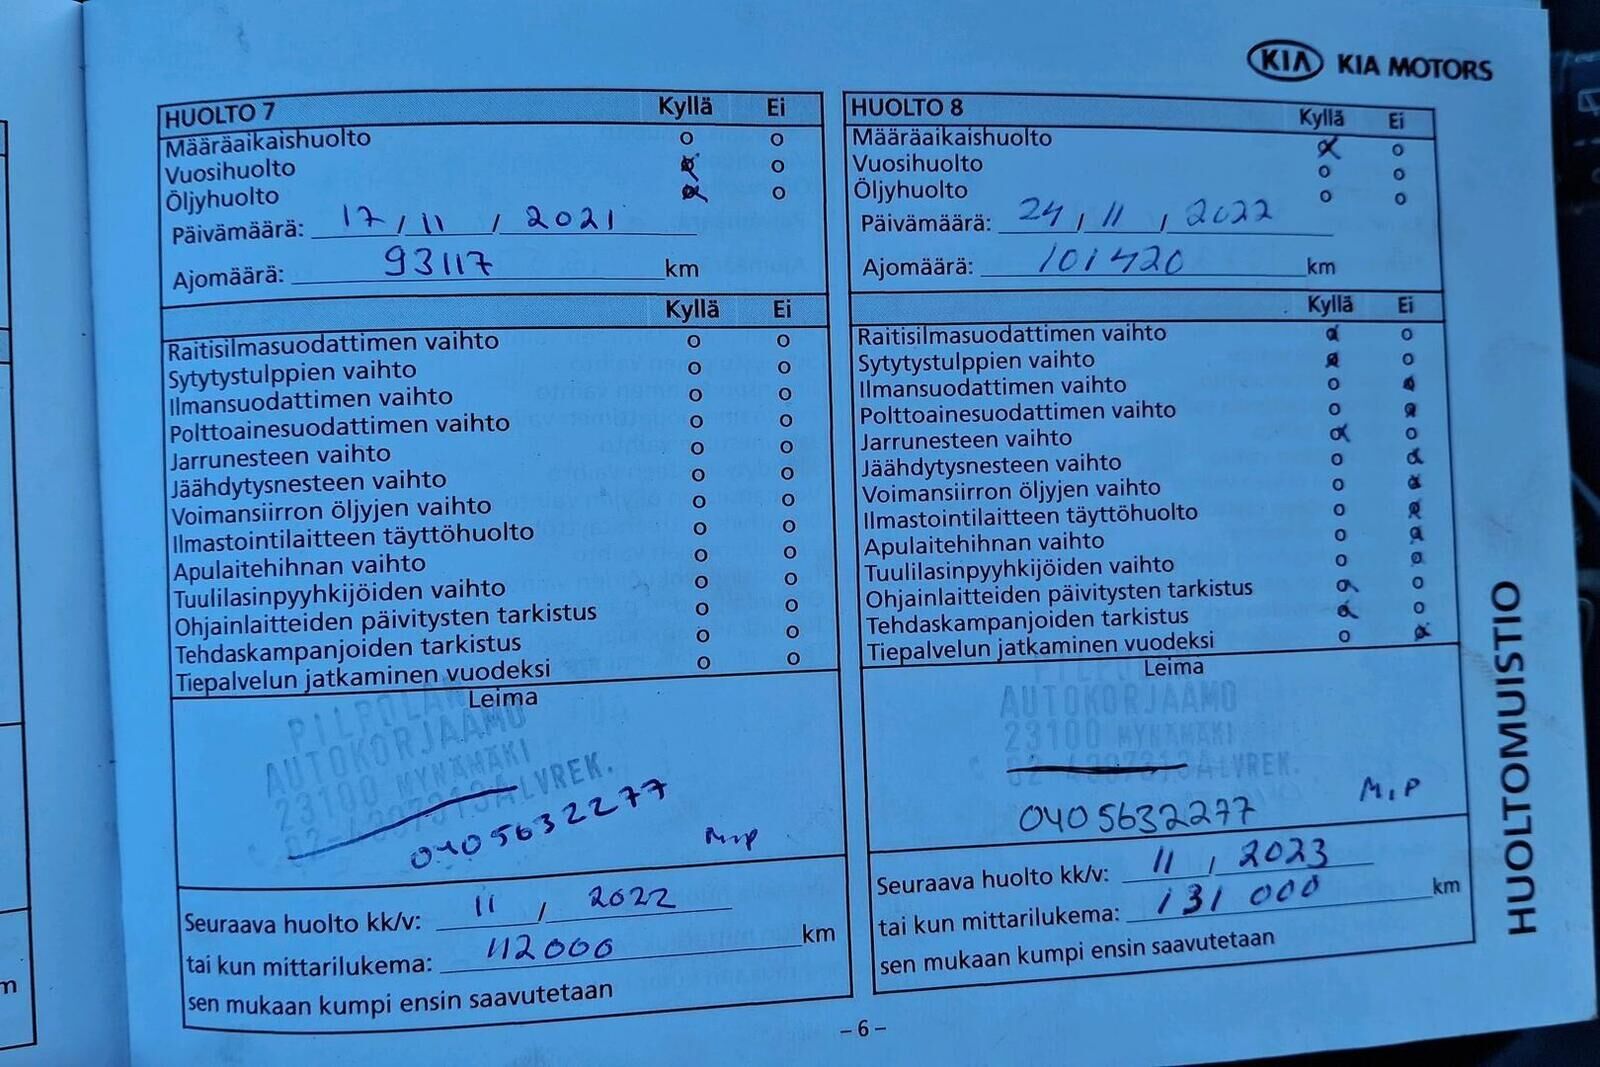 KIA KIA MOTORS
HUOLTO 7 Kyllä Ei
Määräaikaishuolto o o
Vuosihuolto x o
Öljyhuolto x o
Päivämäärä: 17 / 11 / 2021
Ajomäärä: 93117 km
Kyllä Ei
Raitisilmasuodattimen vaihto o o
Sytytystulppien vaihto o o
Ilmansuodattimen vaihto o o
Polttoainesuodattimen vaihto o o
Jarrunesteen vaihto o o
Jäähdytysnesteen vaihto o o
Voimansiirron öljyjen vaihto o o
Ilmastointilaitteen täyttöhuolto o o
Apulaitehihnan vaihto o o
Tuulilasinpyyhkijöiden vaihto o o
Ohjainlaitteiden päivitysten tarkistus o o
Tehdaskampanjoiden tarkistus o o
Tiepalvelun jatkaminen vuodeksi o o
Leima
PILPOLAN
AUTOKORJAAMO
23100 MYNÄMÄKI
ALVREK.
040 5632277
M.P
Seuraava huolto kk/v: 11 / 2022
tai kun mittarilukema: 112000 km
sen mukaan kumpi ensin saavutetaan
HUOLTO 8 Kyllä Ei
Määräaikaishuolto x o
Vuosihuolto o o
Öljyhuolto o o
Päivämäärä: 24 / 11 / 2022
Ajomäärä: 101420 km
Kyllä Ei
Raitisilmasuodattimen vaihto x o
Sytytystulppien vaihto x o
Ilmansuodattimen vaihto o x
Polttoainesuodattimen vaihto o x
Jarrunesteen vaihto x o
Jäähdytysnesteen vaihto o x
Voimansiirron öljyjen vaihto o x
Ilmastointilaitteen täyttöhuolto o x
Apulaitehihnan vaihto o x
Tuulilasinpyyhkijöiden vaihto o x
Ohjainlaitteiden päivitysten tarkistus x o
Tehdaskampanjoiden tarkistus x o
Tiepalvelun jatkaminen vuodeksi o x
Leima
PILPOLAN
AUTOKORJAAMO
23100 MYNÄMÄKI
ALVREK.
040 5632277
M.P
Seuraava huolto kk/v: 11 / 2023
tai kun mittarilukema: 131 000 km
sen mukaan kumpi ensin saavutetaan
HUOLTOMUISTIO
– 6 –